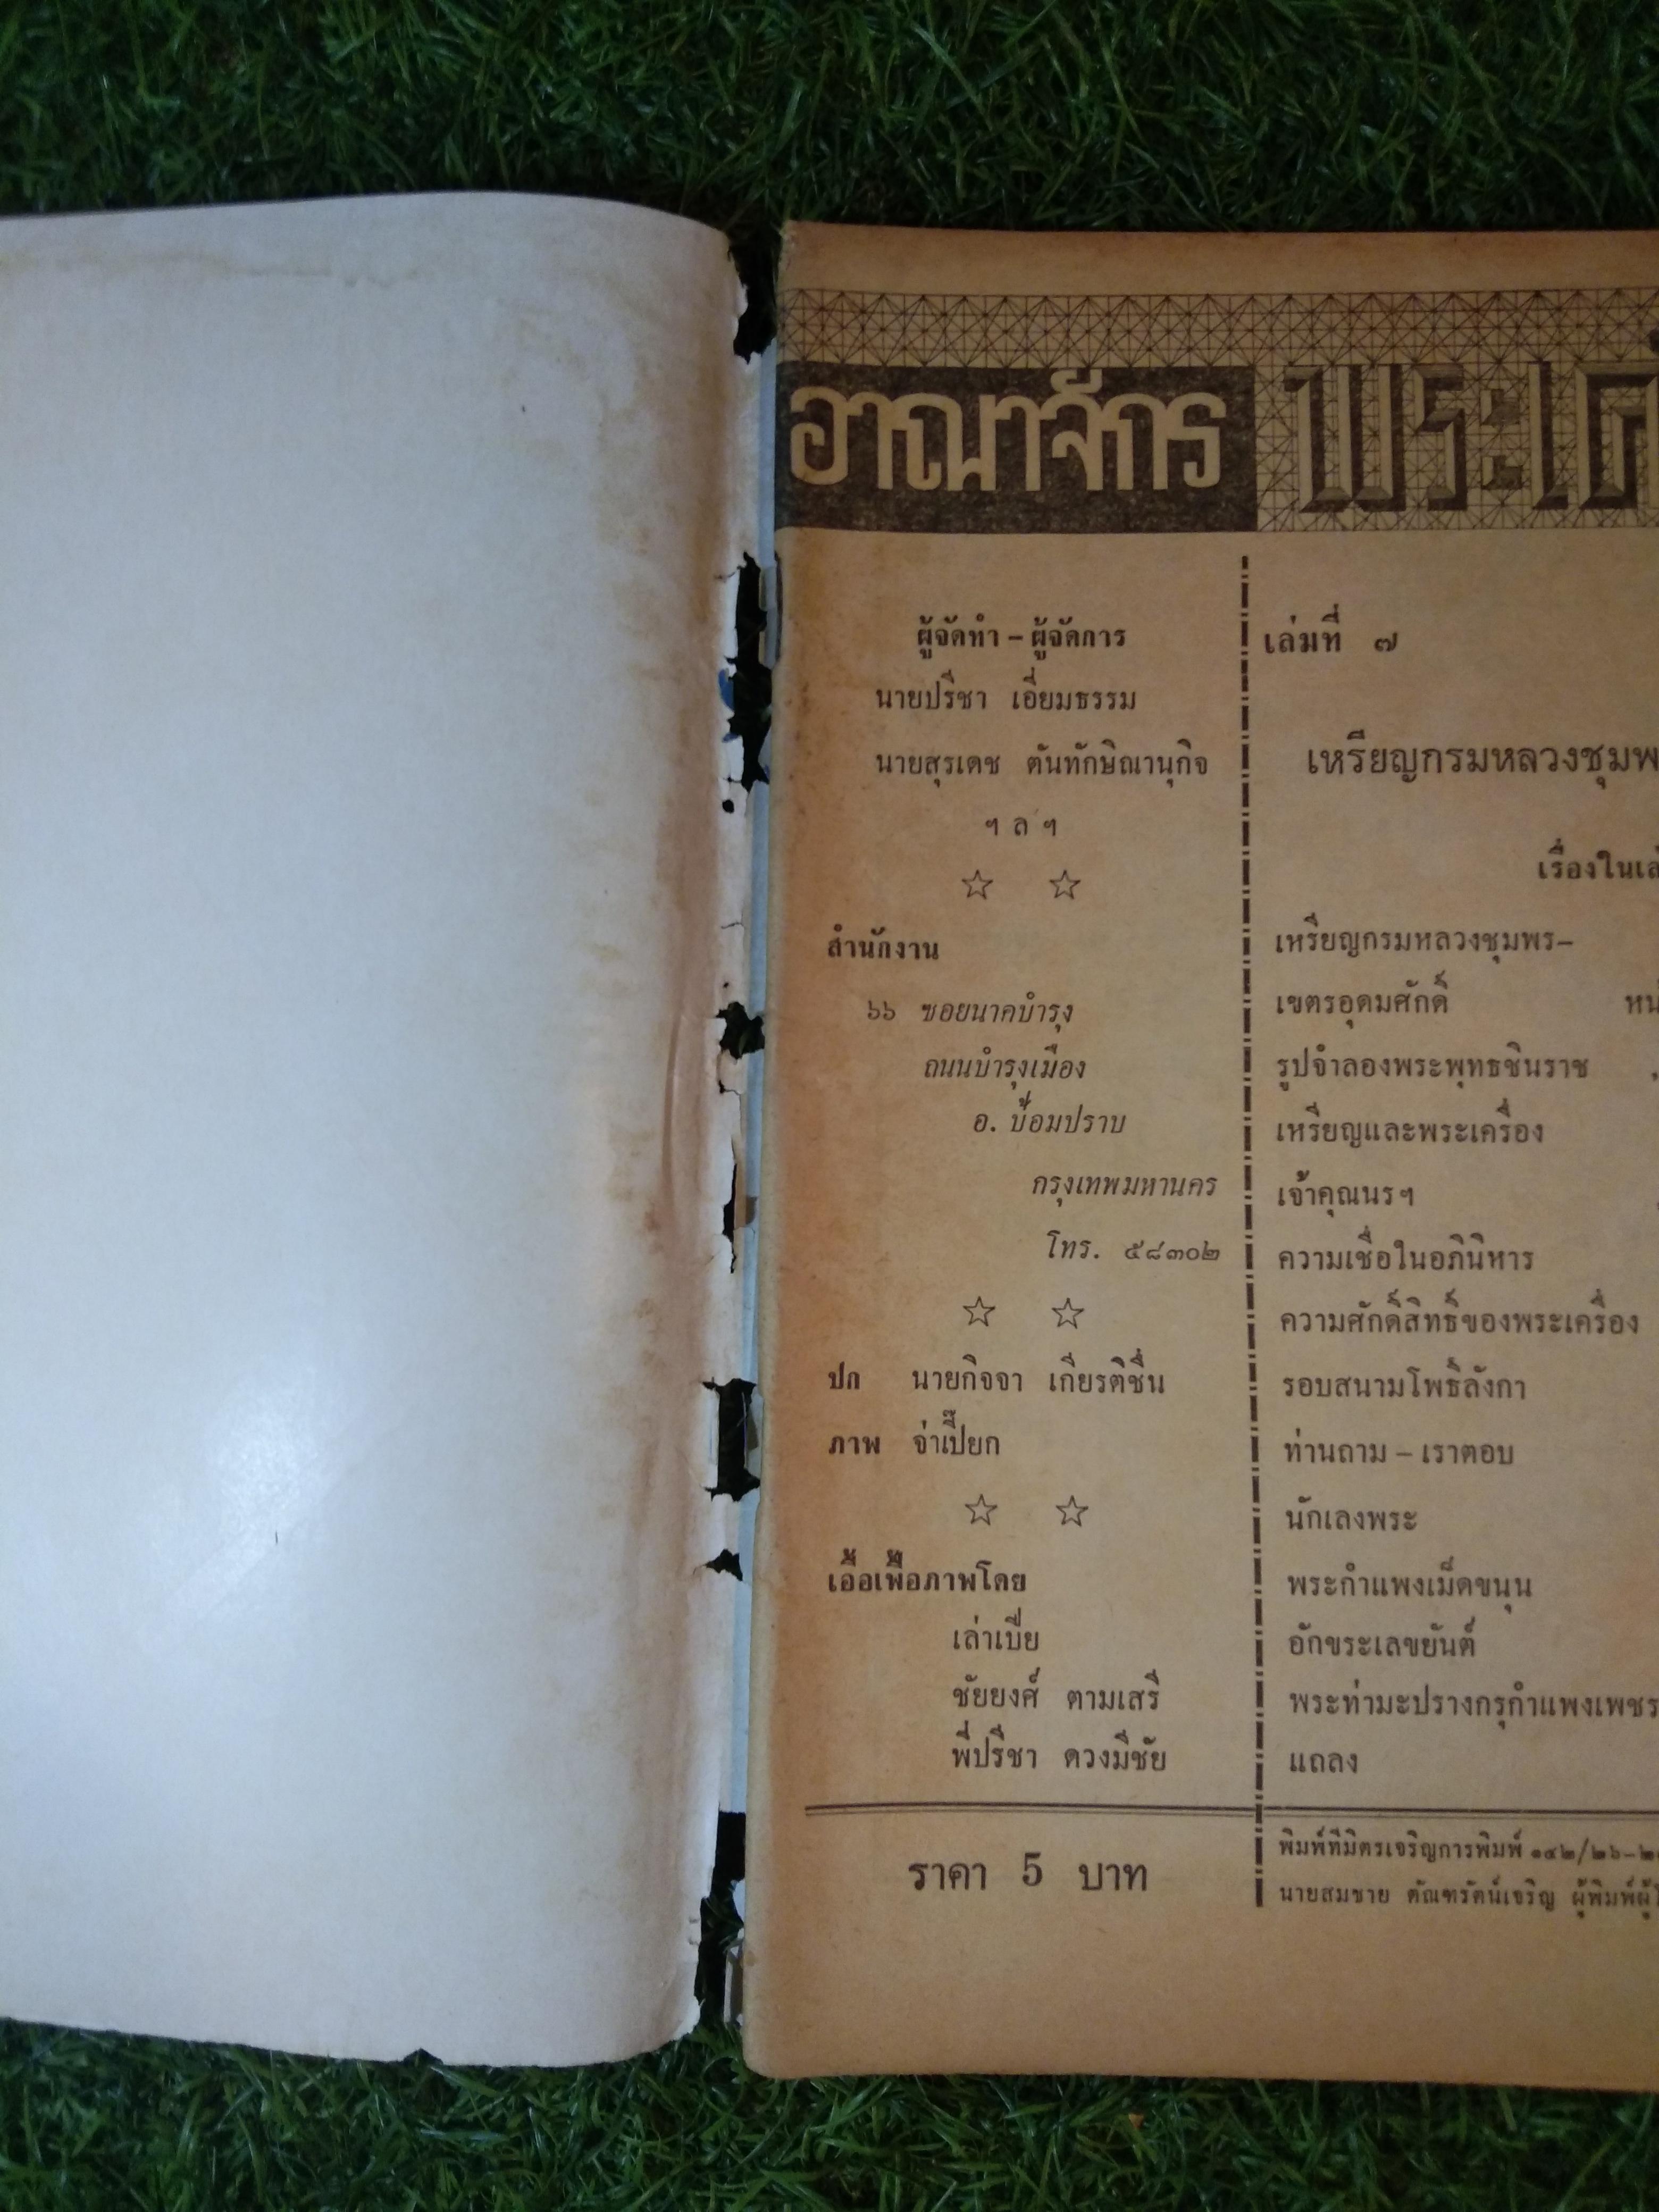 อาณาจักร
ผู้จัดทำ – ผู้จัดการ
นายปรีชา เอี่ยมธรรม
นายสุรเดช ตันทักษิณานุกิจ
ฯ ล ฯ
☆ ☆
สำนักงาน
๖๖ ซอยนาคบำรุง
ถนนบำรุงเมือง
อ. ป้อมปราบ
กรุงเทพมหานคร
โทร. ๕๘๓๐๒
☆ ☆
ปก นายกิจจา เกียรติชื่น
ภาพ จ่าเปี๊ยก
☆ ☆
เอื้อเฟื้อภาพโดย
เล่าเปีย
ชัยยงศ์ ตามเสรี
พี่ปรีชา ดวงมีชัย
ราคา 5 บาท
เล่มที่ ๗
เหรียญกรมหลวงชุมพ
เรื่องในเล่
เหรียญกรมหลวงชุมพร–
เขตรอุดมศักดิ์ หน้
รูปจำลองพระพุทธชินราช
เหรียญและพระเครื่อง
เจ้าคุณนรฯ
ความเชื่อในอภินิหาร
ความศักดิ์สิทธิ์ของพระเครื่อง
รอบสนามโพธิ์ลังกา
ท่านถาม – เราตอบ
นักเลงพระ
พระกำแพงเม็ดขนุน
อักขระเลขยันต์
พระท่ามะปรางกรุกำแพงเพชร
แถลง
พิมพ์ที่มิตรเจริญการพิมพ์ ๑๔๒/๒๖–๒
นายสมชาย ตัณฑรัตน์เจริญ ผู้พิมพ์ผู้